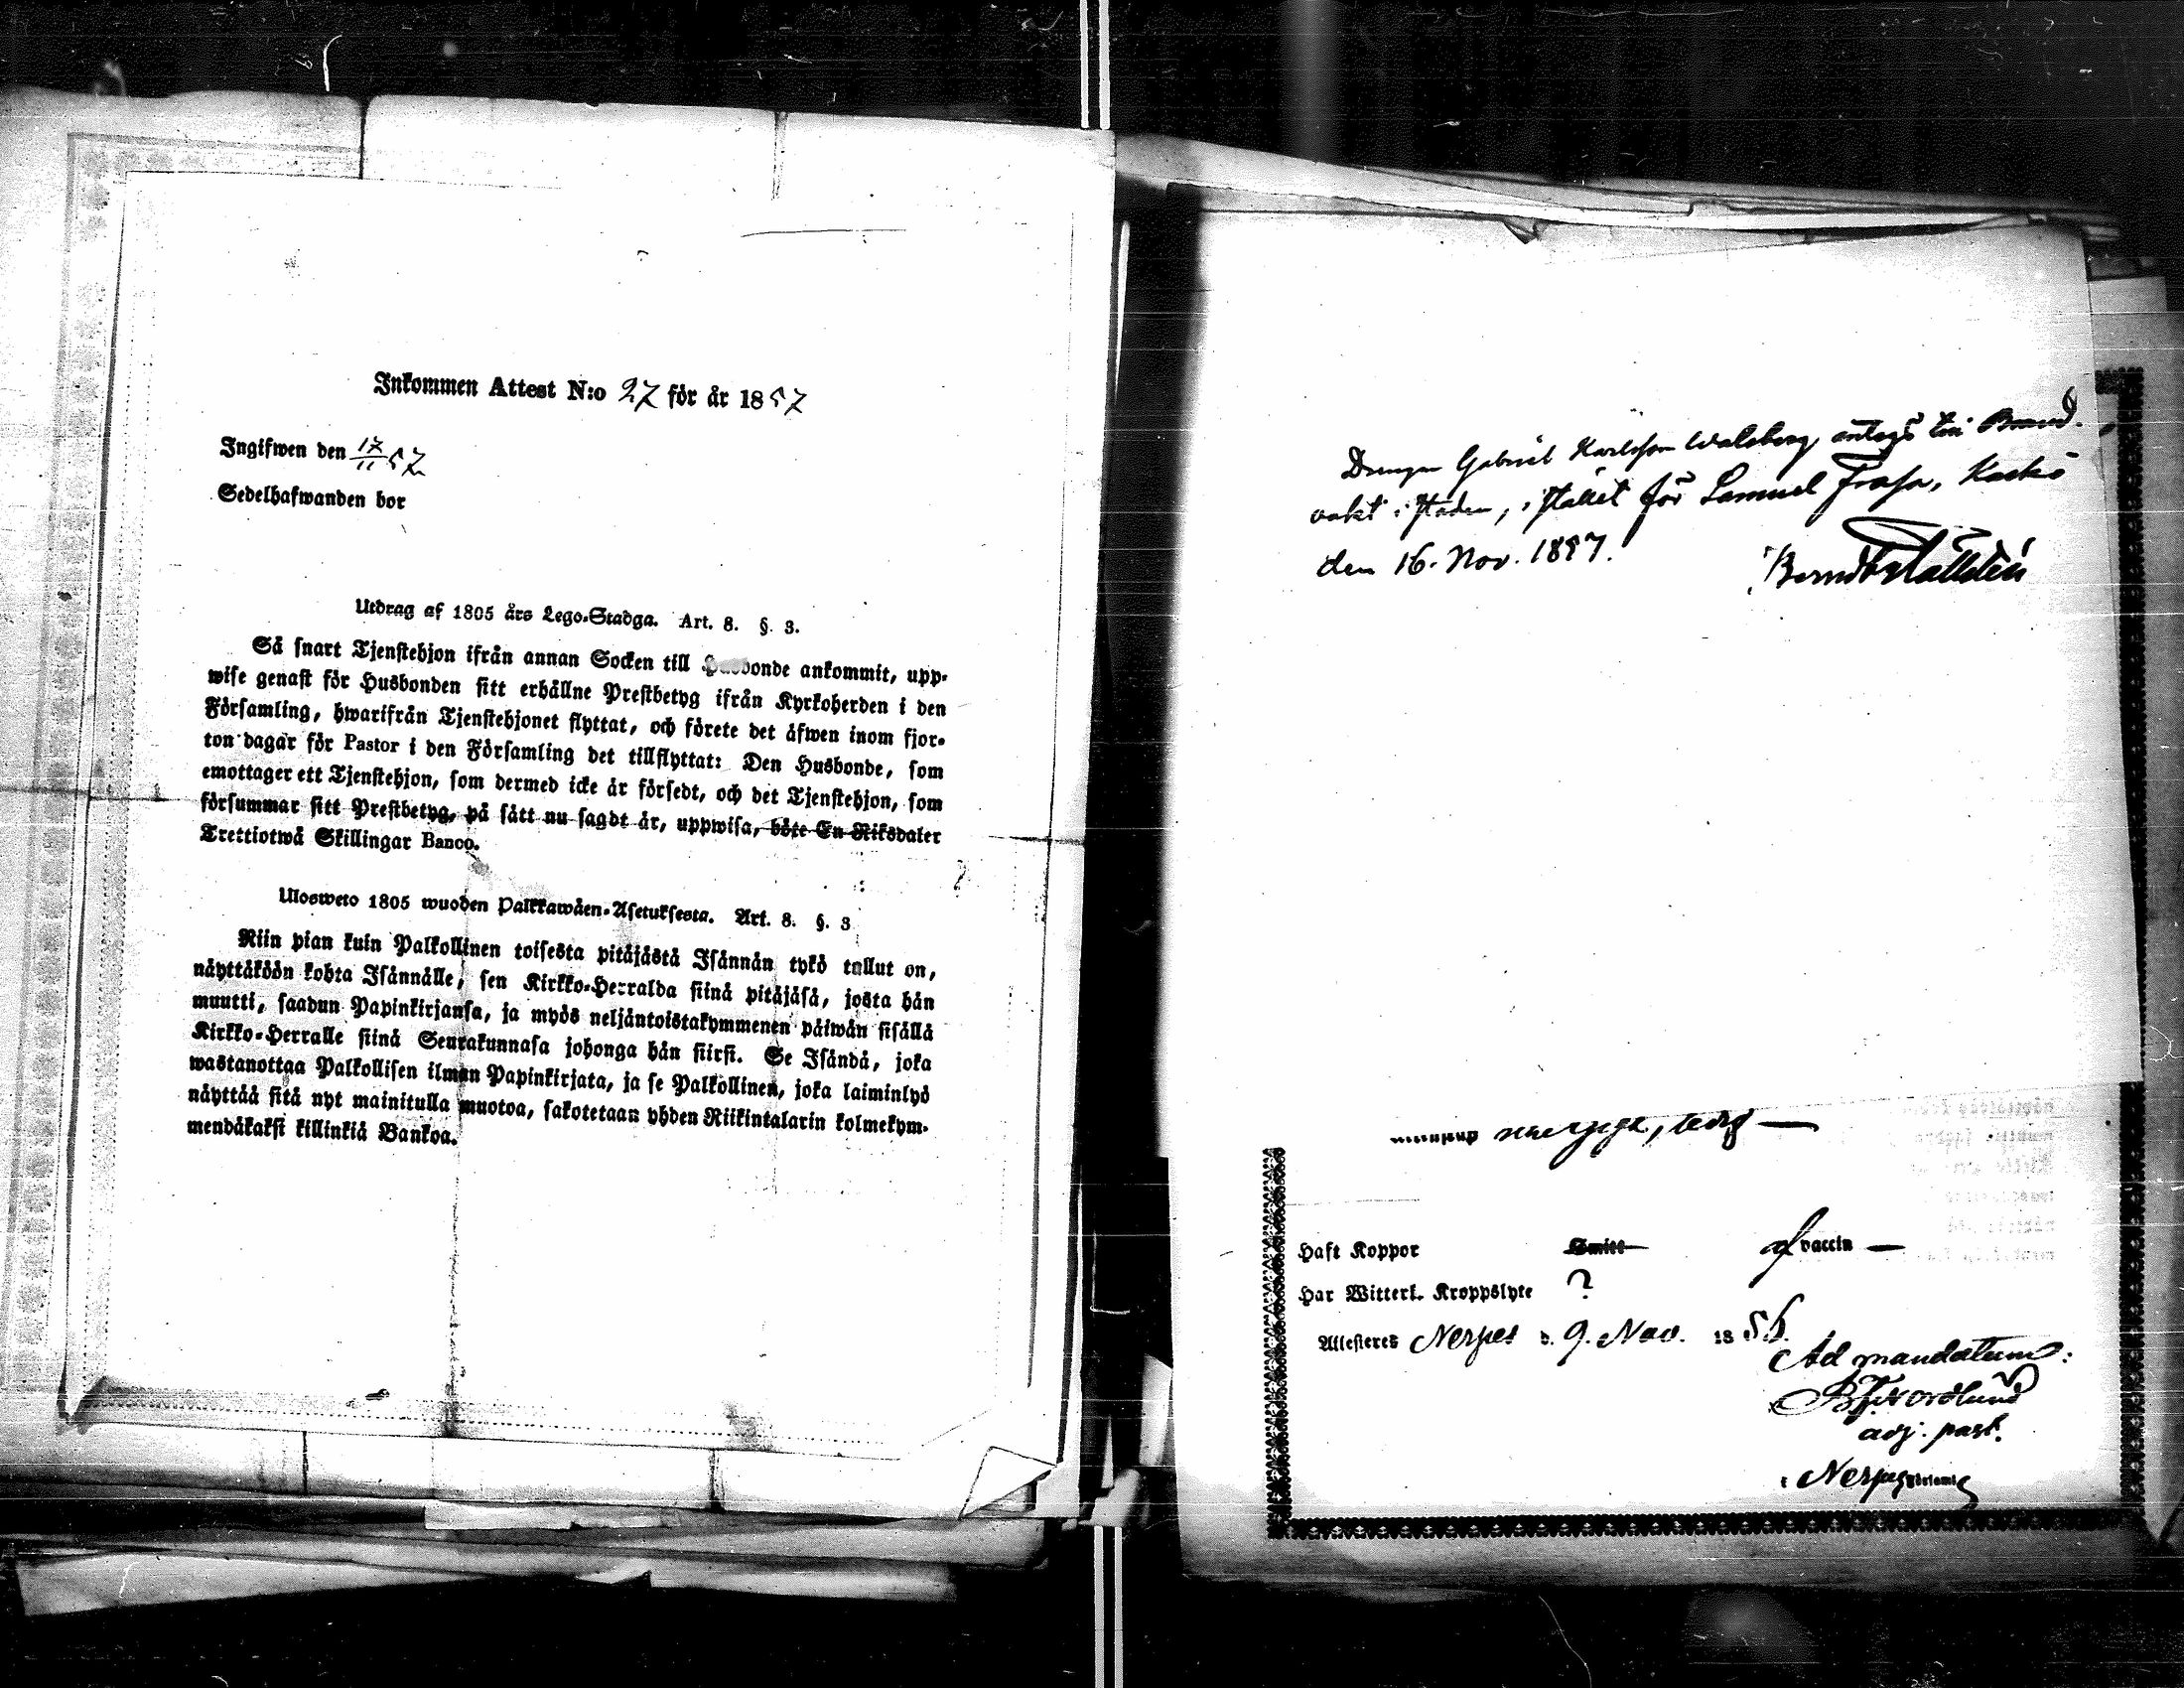 Inkommen Attest N:o 27 för år 1857
Ingifwen den 17/11 57
Sedelhafwanden bor
Utdrag af 1805 års Lego-Stadga. Art. 8. §. 3.
Så snart Tjenstehjon ifrån annan Socken till Husbonde ankommit, upp-
wise genast för Husbonden sitt erhållne Prestbetyg ifrån Kyrkoherden i den
Församling, hwarifrån Tjenstehjonet flyttat, och förete det äfwen inom fjor-
ton dagar för Pastor i den Församling det tillflyttat: Den Husbonde, som
emottager ett Tjenstehjon, som dermed icke är försedt, och det Tjenstehjon, som
försummar sitt Prestbetyg, på sätt nu sagdt är, uppwisa, böte En Riksdaler
Trettiotwå Skillingar Banco.
Ulosweto 1805 wuoden Palkkawäen-Asetuksesta. Art. 8. §. 3
Niin pian kuin Palkollinen toisesta pitäjästä Isännän tykö tullut on,
näyttäköön kohta Isännälle, sen Kirkko-Herralda siinä pitäjäsä, josta hän
muutti, saadun Papinkirjansa, ja myös neljäntoistakymmenen päiwän sisällä
Kirkko-Herralle siinä Seurakunnasa johonga hän siirsi. Se Isändä, joka
wastanottaa Palkollisen ilman Papinkirjata, ja se Palkollinen, joka laiminlyö
näyttää sitä nyt mainitulla muotoa, sakotetaan yhden Riikintalarin kolmekym-
mendäkaksi killinkiä Bankoa.
Drengen Gabriel Karlsson Walsberg antags till Brand-
vakt i staden, i stället för Samuel Frasa, Kaskö
den 16. Nov. 1857.
Haft Koppor Smitt af vaccin
Har Witterl. Kroppslyte ?
Attesteres Nerpes d. 9. Nov. 1856.
Ad mandatum:
Nordlund
adj. past.
i Nerpes